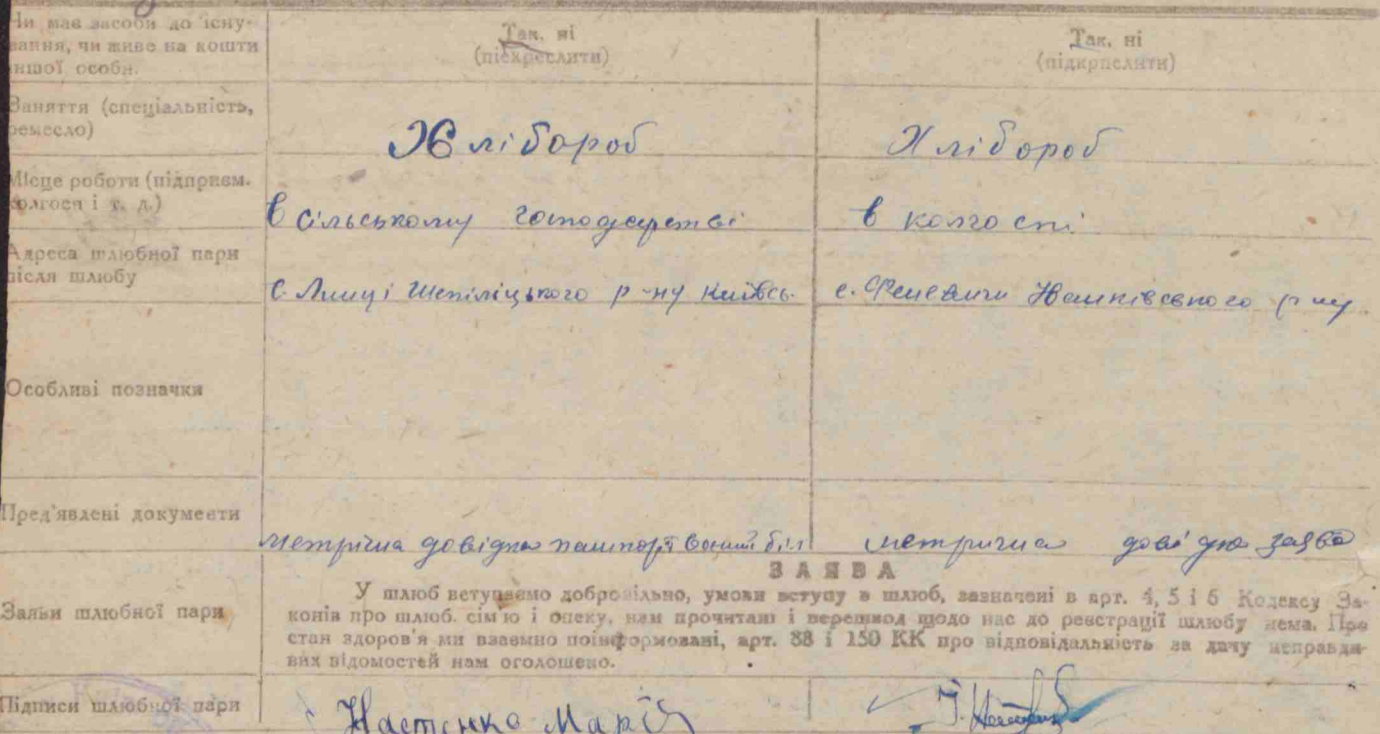 Чи має засоби до існу- Так, ні Так, ні
вання, чи живе на кошти (підкреслити) (підкреслити)
іншої особи.
Заняття (спеціальність,
ремесло) Хлібороб Хлібороб
Місце роботи (підприєм.
колгосп і т. д.) в сільському господарстві в колгоспі
Адреса шлюбної пари
після шлюбу с. Шепіліцького р-ну Київсь. с. Феневичи р ну
Особливі позначки
Пред'явлені документи метрична довідка пашпорт біл метрична довідка
ЗАЯВА
У шлюб вступаємо добровільно, умови вступу в шлюб, зазначені в арт. 4, 5 і 6 Кодексу За-
Заяви шлюбної пари конів про шлюб. сім'ю і опеку, нам прочитані і перешкод щодо нас до реєстрації шлюбу нема. Про
стан здоров'я ми взаємно поінформовані, арт. 88 і 150 КК про відповідальність за дачу неправди-
вих відомостей нам оголошено.
Підписи шлюбної пари Настенко Марія